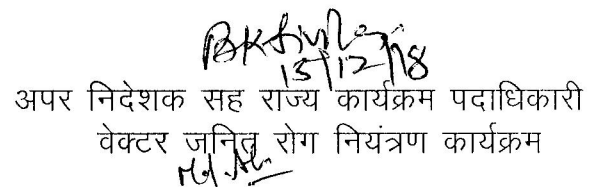 15/12/18
अपर निदेशक सह राज्य कार्यक्रम पदाधिकारी
वेक्टर जनित रोग नियंत्रण कार्यक्रम